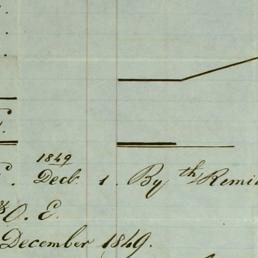 1849
Decb. 1. By th Remi
O. E.
December 1849.